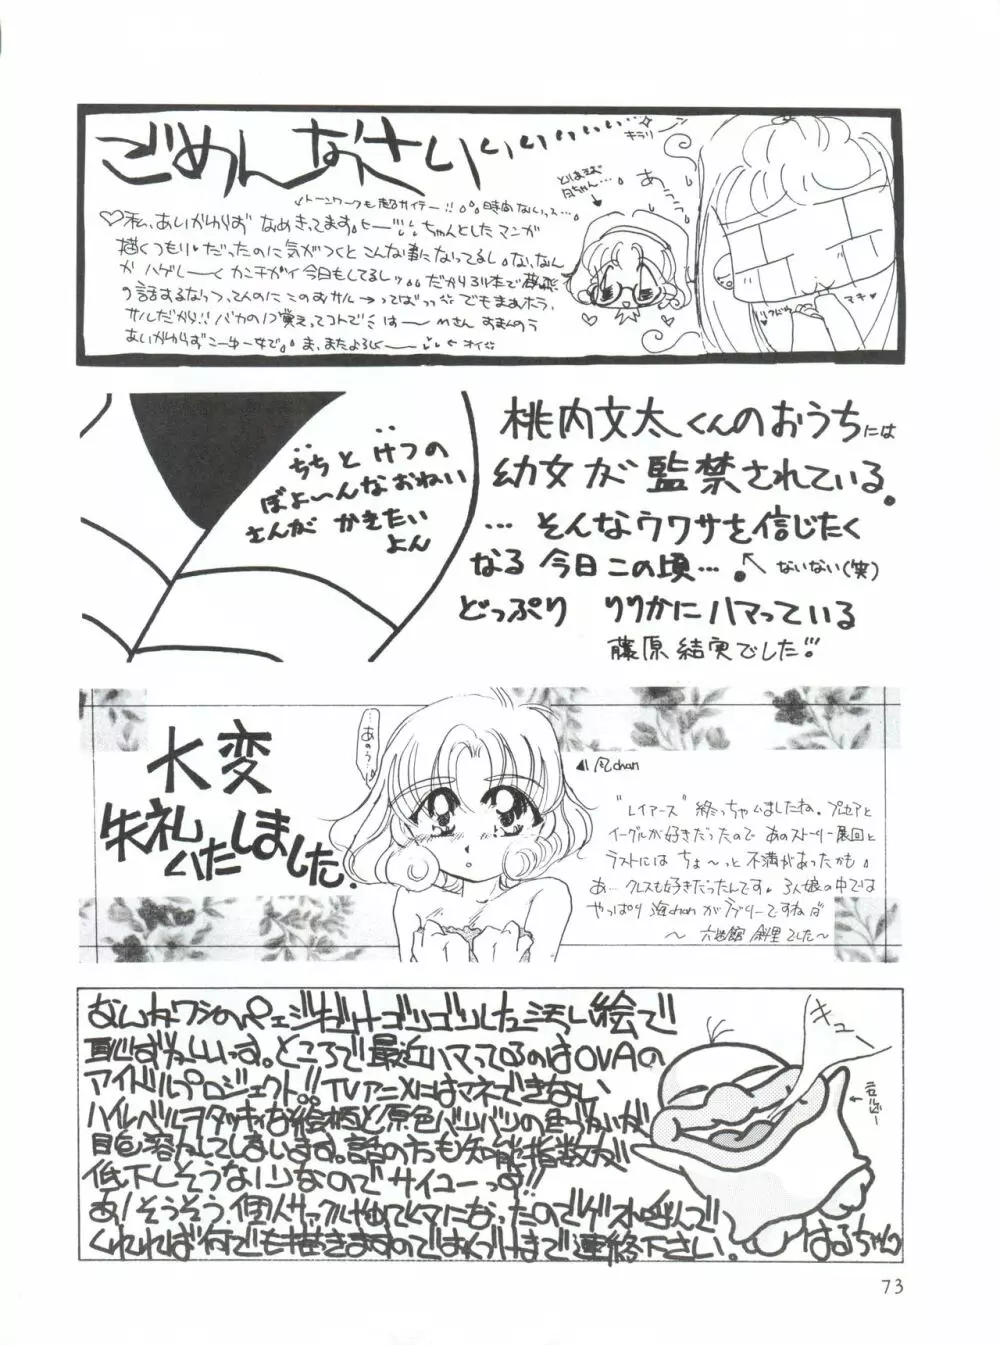 ごめんなさいぃぃぃぃ……
キラリ
あう
マキ
♡私、あいかわらず なめきってます。ちゃんとしたマンガ
描くつもりだったのに気がつくとこんな事になってるし。な、なんか
ハゲしーくカンチガイ今日もしてるしッ。だから
でもまぁホラ、
サルだから!! バカの1つ覚えってコトで は〜 Mさんすまんのう
あいかわらずこーゆー女で。ま、またよろしく ←オイ
ちちとけつの
ぼよ〜んなおねい
さんが かきたい
よん
桃内文太くんのおうちには
幼女が監禁されている。
…そんなウワサを信じたく
なる今日この頃…。
←ないない(笑)
どっぷり りりかにハマっている
藤原結実でした!!
大変
失礼
いたしました。
…あのう…
風chan
"レイアース"終っちゃいましたね。プセアと
イーグルが好きだったので あのストーリー展回と
ラストには ちょ〜っと不満があったかも。
あ…クレスも好きだったんです。3人娘の中では
やっぱり海chanがラブリーですねぇ
〜 でした〜
なんかワシのページだけゴツゴツした汚い絵で
恥ずかしいっす。ところで最近ハマってるのはOVAの
アイドルプロジェクト!! TVアニメにはマネできない
ハイレベルヲタッキィな絵柄と原色バリバリの色づかいが
目を溶かしてしまいます。話の方も知能指数が
低下しそうなハツなのでサイコーっす!!
あ!そうそう、個人サークルやめてヒマになったのでゲスト呼んで
くれれば何でも描きますのではんぺけまで連絡下さい。
キュー
はるちゃん
73